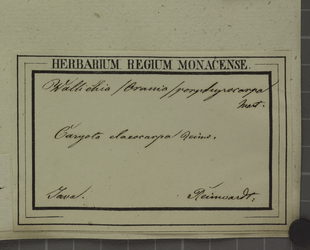 HERBARIUM REGIUM MONACENSE.
Wallichia /Orania/ porphyrocarpa
Mart.
Caryota elaeocarpa Reinw.
Java. Reinwardt.